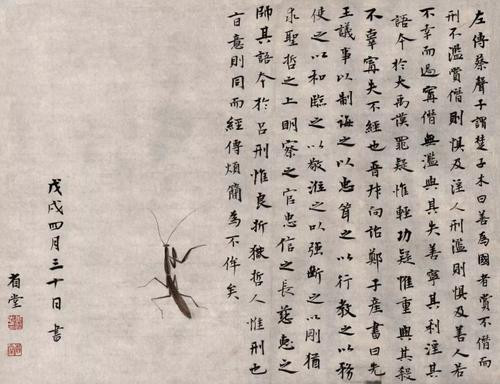 左傳蔡聲子謂楚子木曰善為國者賞不僭而
刑不濫賞僭則懼及淫人刑濫則懼及善人若
不幸而過甯僭無濫與其失善寧其利淫其
語今於大禹謨罪疑惟輕功疑惟重與其殺
不辜甯失不經也晉叔向詒鄭子產書曰先
王議事以制誨之以忠聳之以行教之以務
使之以和臨之以敬涖之以強斷之以剛猶
求聖哲之上明察之官忠信之長慈惠之
師其語今於呂刑惟良折獄哲人惟刑也
旨意則同而經傳煩簡為不侔矣
戊戌四月三十日書
省堂